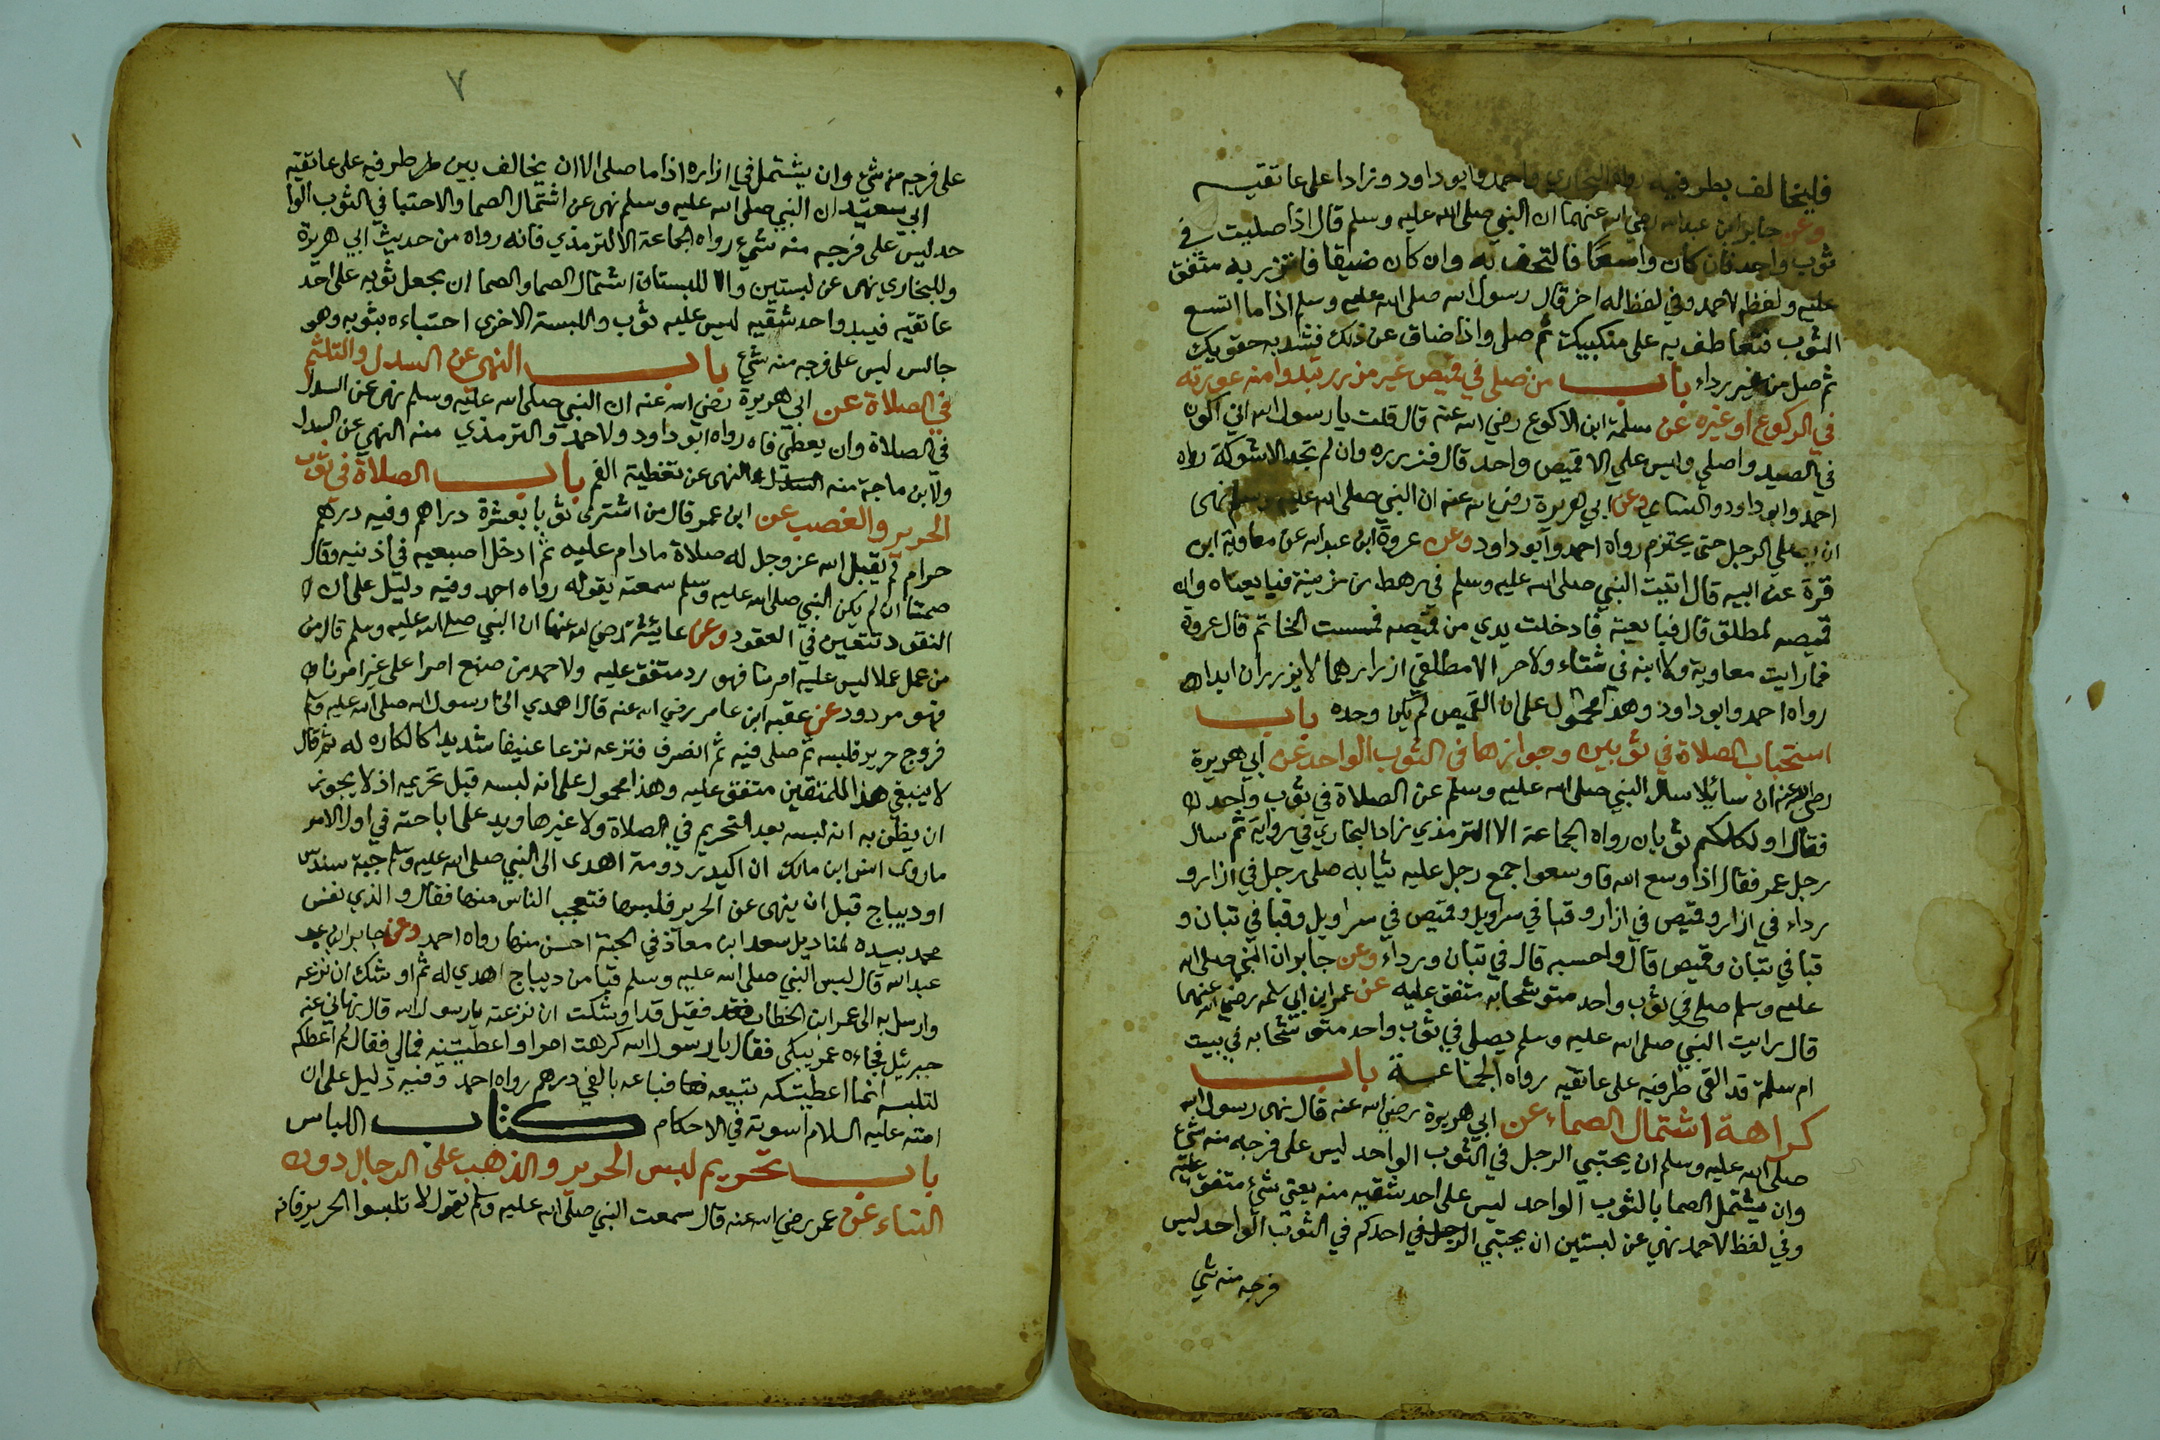 فليخالف بطرفيه رواه البخاري واحمد وابو داود وزادا على عاتقيه
وعن جابر ابن عبد الله رضي الله عنهما ان النبي صلى الله عليه وسلم قال اذا صليت في
ثوب واحد فان كان واسعا فالتحف به وان كان ضيقا فاتزر به متفق
عليه ولفظه لاحمد وفي لفظ له اخر قال رسول الله صلى الله عليه وسلم اذا ما اتسع
الثوب فتعاطف به على منكبيك ثم صل واذا ضاق عن ذلك فشد به حقويك
ثم صل من غير رداء باب من صلى في قميص غير مزرر تبدوا منه عورته
في الركوع او غيره عن سلمة ابن الاكوع رضي الله عنه قال قلت يا رسول الله اني اكون
في الصيد واصلي وليس علي الا قميص واحد قال فزرره وان لم تجد الا شوكة رواه
احمد وابو داود والنسائي وعن ابي هريرة رضي الله عنه ان النبي صلى الله عليه وسلم نهى
ان يصلي الرجل حتى يحتزم رواه احمد وابو داود وعن عروة ابن عبد الله عن معاوية ابن
قرة عن ابيه قال اتيت النبي صلى الله عليه وسلم في رهط من مزينة فبايعناه وان
قميصه لمطلق قال فبايعته فادخلت يدي من قميصه فمسست الخاتم قال عروة
فما رايت معاوية ولا ابنه في شتاء ولا حر الا مطلقي ازرارهما لا يزرران ابدا
رواه احمد وابو داود وهذا محمول على ان القميص لم يكن وحده باب
استحباب الصلاة في ثوبين وجوازها في الثوب الواحد عن ابي هريرة
رضي الله عنه ان سائلا سال النبي صلى الله عليه وسلم عن الصلاة في ثوب واحد
فقال او لكلكم ثوبان رواه الجماعة الا الترمذي زاد البخاري في رواية ثم سال
رجل عمر فقال اذا وسع الله فاوسعوا جمع رجل عليه ثيابه صلى رجل في ازار و
رداء في ازار وقميص في ازار وقبا في سراويل وقميص في سراويل وقبا في تبان و
قبا في تبان وقميص قال واحسبه قال في تبان ورداء وعن جابر ان النبي صلى الله
عليه وسلم صلى في ثوب واحد متوشحا به متفق عليه عن عمر ابن ابي سلمه رضي الله عنهما
قال رايت النبي صلى الله عليه وسلم يصلي في ثوب واحد متوشحا به في بيت
ام سلمة قد القى طرفيه على عاتقيه رواه الجماعة باب
كراهة اشتمال الصماء عن ابي هريرة رضي الله عنه قال نهى رسول الله
صلى الله عليه وسلم ان يحتبي الرجل في الثوب الواحد ليس على فرجه منه شئ
وان يشتمل الصما بالثوب الواحد ليس على احد شقيه منه يعني شئ متفق عليه
وفي لفظ لاحمد نهي عن لبستين ان يحتبي احدكم في الثوب الواحد ليس
فرجه منه شئ
٧
على فرجه من شئ وان يشتمل في ازاره اذا ما صلى الا ان يخالف بين طرفيه على عاتقيه
ابي سعيد ان النبي صلى الله عليه وسلم نهى عن اشتمال الصما والاحتبا في الثوب الوا
حد ليس على فرجه منه شئ رواه الجماعة الا الترمذي فانه رواه من حديث ابي هريرة
وللبخاري نهى عن لبستين واللبستان اشتمال الصما والصما ان يجعل ثوبه على احد
عاتقيه فيبد واحد شقيه ليس عليه ثوب واللبسة الاخرى احتباءه بثوبه وهو
جالس ليس على فرجه منه شئ باب النهي عن السدل والتلثم
في الصلاة عن ابي هريرة رضي الله عنه ان النبي صلى الله عليه وسلم نهى عن السدل
في الصلاة وان يعطي فاه رواه ابو داود ولاحمد والترمذي منه النهي عن السدل
ولابن ماجة منه النهى عن تغطية الفم باب الصلاة في ثوب
الحرير والغصب عن ابن عمر قال من اشترى ثوبا بعشرة دراهم وفيه درهم
حرام لم يقبل الله عز وجل له صلاة ما دام عليه ثم ادخل اصبعيه في اذنيه وقال
صمتا ان لم يكن النبي صلى الله عليه وسلم سمعته يقوله رواه احمد وفيه دليل على ان
النقود تتعين في العقود وعن عايشة رضي الله عنها ان النبي صلى الله عليه وسلم قال من
من عمل عملا ليس عليه امرنا فهو رد متفق عليه ولاحمد من صنع امرا على غير امرنا
فهو مردود عن عقبه ابن عامر رضي الله عنه قال اهدي الى رسول الله صلى الله عليه وسلم
فروج حرير فلبسه ثم صلى فيه ثم انصرف فنزعه نزعا عنيفا شديدا كالكاره له ثم قال
لا ينبغي هذا للمتقين متفق عليه وهذا محمول على انه لبسه قبل تحريمه اذ لا يجوز
ان يظن به انه لبسه بعد التحريم في الصلاة ولا غيرها ويدل على اباحته في اول الامر
ما روى انس ابن مالك ان اكيدر دومة اهدى الى النبي صلى الله عليه وسلم جبة سندس
او ديباج قبل ان ينهى عن الحرير فلبسها فتعجب الناس منها فقال والذي نفس
محمد بيده لمناديل سعد ابن معاذ في الجنة احسن منها رواه احمد وعن جابر ابن عبد
عبد الله قال لبس النبي صلى الله عليه وسلم قبا من ديباج اهدي له ثم اوشك ان نزعه
وارسل به الى عمر ابن الخطاب فقيل قد اوشكت ان نزعته يا رسول الله قال نهاني عنه
جبرئيل فجاءه عمر يبكي فقال يا رسول الله كرهت امرا واعطيتنيه فمالي فقال لم اعطكه
لتلبسه انما اعطيتكه تبيعه فباعه بالفي درهم رواه احمد وفيه دليل على ان
امته عليه السلام اسوته في الاحكام كتاب اللباس
باب تحريم لبس الحرير والذهب على الرجال دون
النساء عن عمر رضي الله عنه قال سمعت النبي صلى الله عليه وسلم يقول لا تلبسوا الحرير فانه